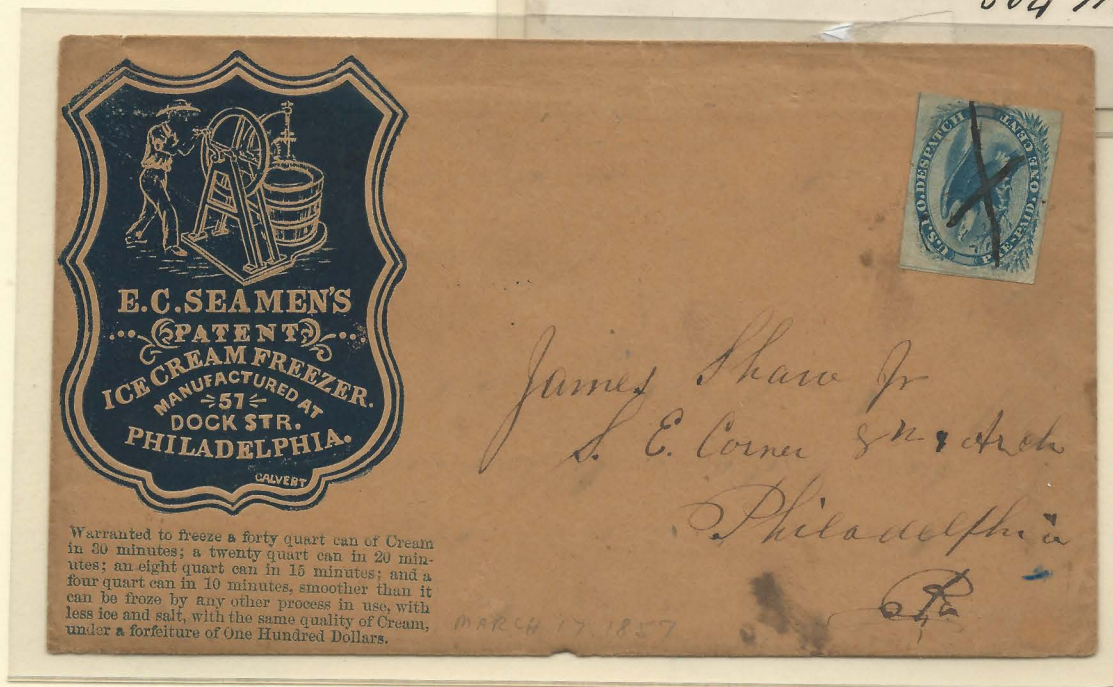 E.C.SEAMEN'S
PATENT
ICE CREAM FREEZER.
MANUFACTURED AT
57
DOCK STR.
PHILADELPHIA.
CALVERT
Warranted to freeze a forty quart can of Cream
in 30 minutes; a twenty quart can in 20 min-
utes; an eight quart can in 15 minutes; and a
four quart can in 10 minutes, smoother than it
can be froze by any other process in use, with
less ice and salt, with the same quality of Cream,
under a forfeiture of One Hundred Dollars.
U.S.P.O. DESPATCH
PRE-PAID. ONE CENT
James Shaw Jr
S. E. Corner 8th & Arch
Philadelphia
Pa
MARCH 17 1857